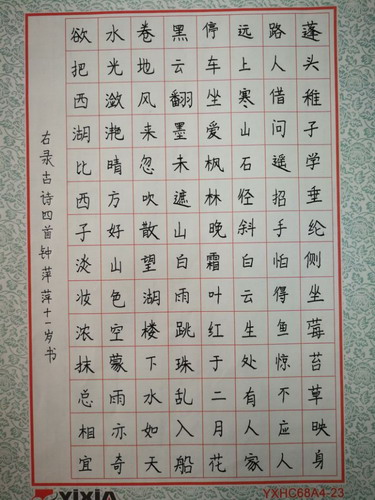 蓬头稚子学垂纶侧坐莓苔草映身
路人借问遥招手怕得鱼惊不应人
远上寒山石径斜白云生处有人家
停车坐爱枫林晚霜叶红于二月花
黑云翻墨未遮山白雨跳珠乱入船
卷地风来忽吹散望湖楼下水如天
水光潋滟晴方好山色空蒙雨亦奇
欲把西湖比西子淡妆浓抹总相宜
右录古诗四首钟萍萍十一岁书
YXHC68A4-23